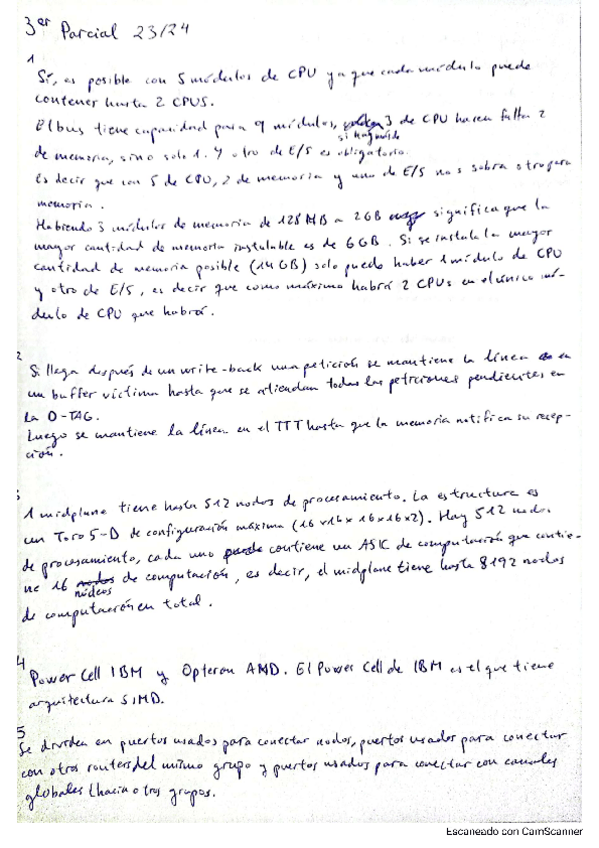 3er Parcial 23/24
1
Sí, es posible con 5 módulos de CPU ya que cada módulo puede
contener hasta 2 CPUS.
El bus tiene capacidad para 9 módulos, 3 de CPU hacen falta 2
si hay más de
de memoria, sino solo 1. Y otro de E/S es obligatorio.
Es decir que con 5 de CPU, 2 de memoria y uno de E/S nos sobra otro para
memoria.
Habiendo 3 módulos de memoria de 128MB a 2GB significa que la
mayor cantidad de memoria instalable es de 6GB. Si se instala la mayor
cantidad de memoria posible (14GB) solo puede haber 1 módulo de CPU
y otro de E/S, es decir que como máximo habrá 2 CPUs en el único mó-
dulo de CPU que habrá.
2
Si llega después de un write-back una petición se mantiene la línea en
un buffer víctima hasta que se atiendan todas las peticiones pendientes en
la D-TAG.
Luego se mantiene la línea en el TTT hasta que la memoria notifica su recep-
ción.
1 midplane tiene hasta 512 nodos de procesamiento. La estructura es
un Toro 5-D de configuración máxima (16x16x16x16x2). Hay 512 nodos
de procesamiento, cada uno contiene un ASIC de computación que contie-
ne 16 núcleos de computación, es decir, el midplane tiene hasta 8192 nodos
de computación en total.
4
Power Cell IBM y Opteron AMD. El Power Cell de IBM es el que tiene
arquitectura SIMD.
5
Se dividen en puertos usados para conectar nodos, puertos usados para conectar
con otros routers del mismo grupo y puertos usados para conectar con canales
globales (hacia otros grupos.
Escaneado con CamScanner